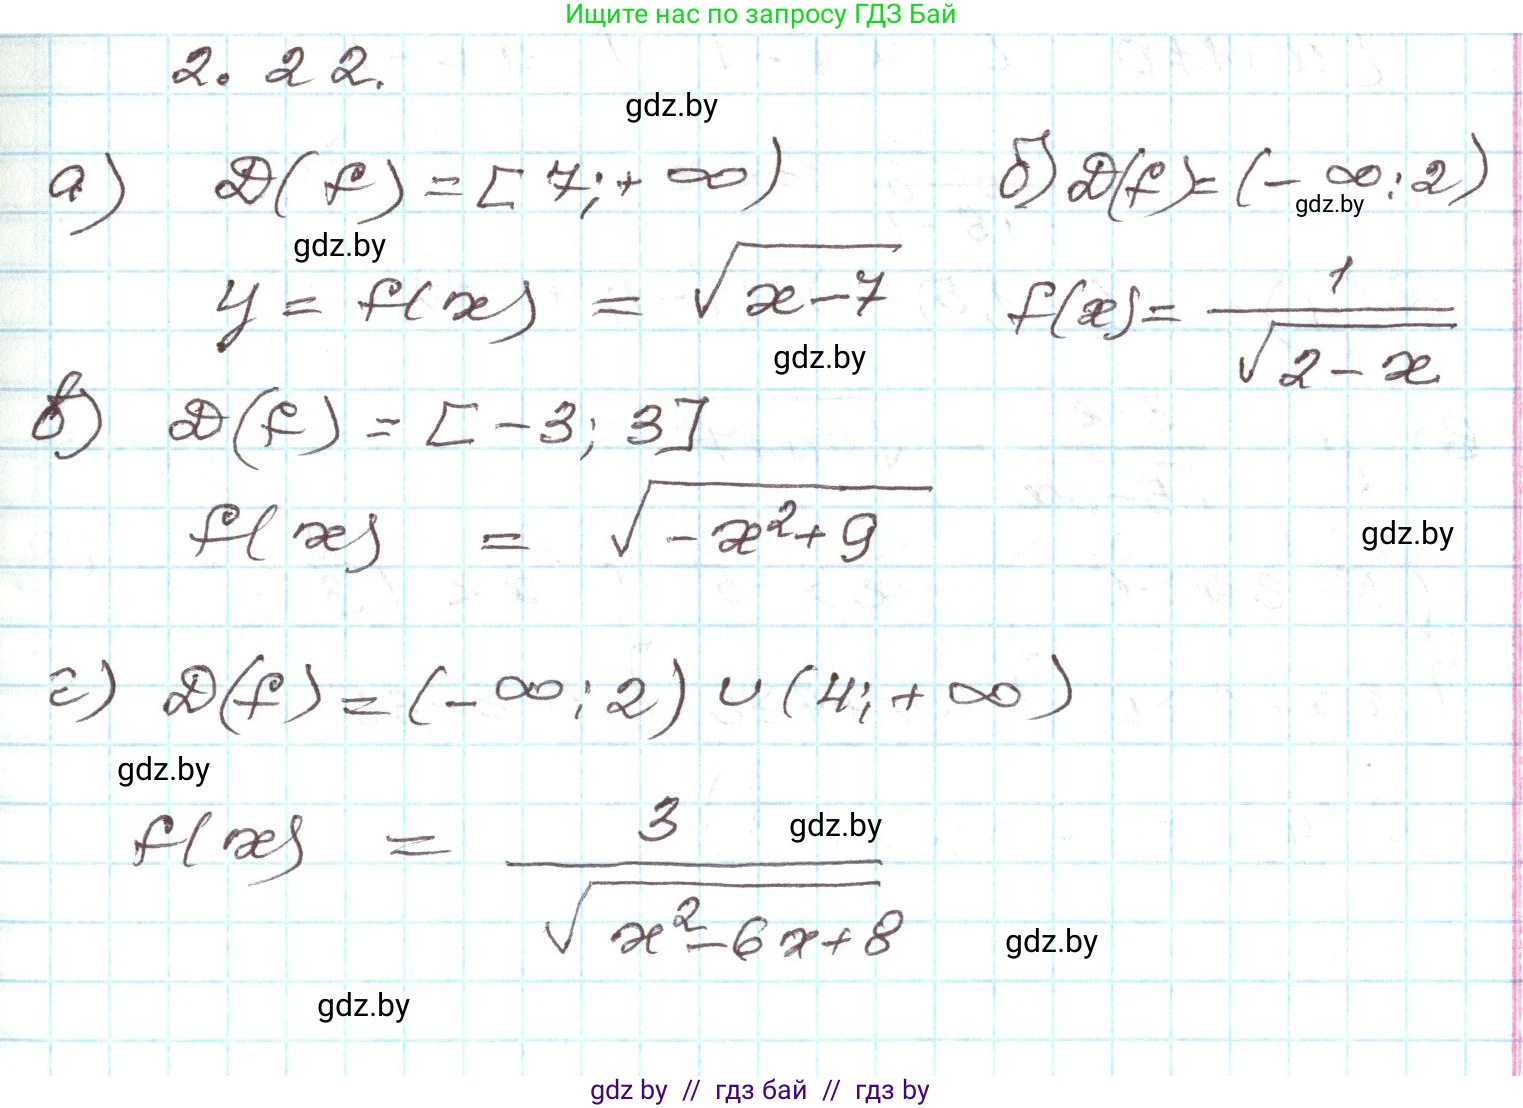 Ищите нас по запросу ГДЗ Бай
2.22.
gdz.by
а) D(f) = [7; +∞) б) D(f) = (-∞; 2)
gdz.by
gdz.by
y = f(x) = √(x-7) f(x) = 1/√(2-x)
gdz.by
в) D(f) = [-3; 3]
f(x) = √(-x²+9)
gdz.by
г) D(f) = (-∞; 2) ∪ (4; +∞)
gdz.by
f(x) = 3/√(x²-6x+8)
gdz.by
gdz.by
gdz.by
gdz by // гдз бай // gdz by